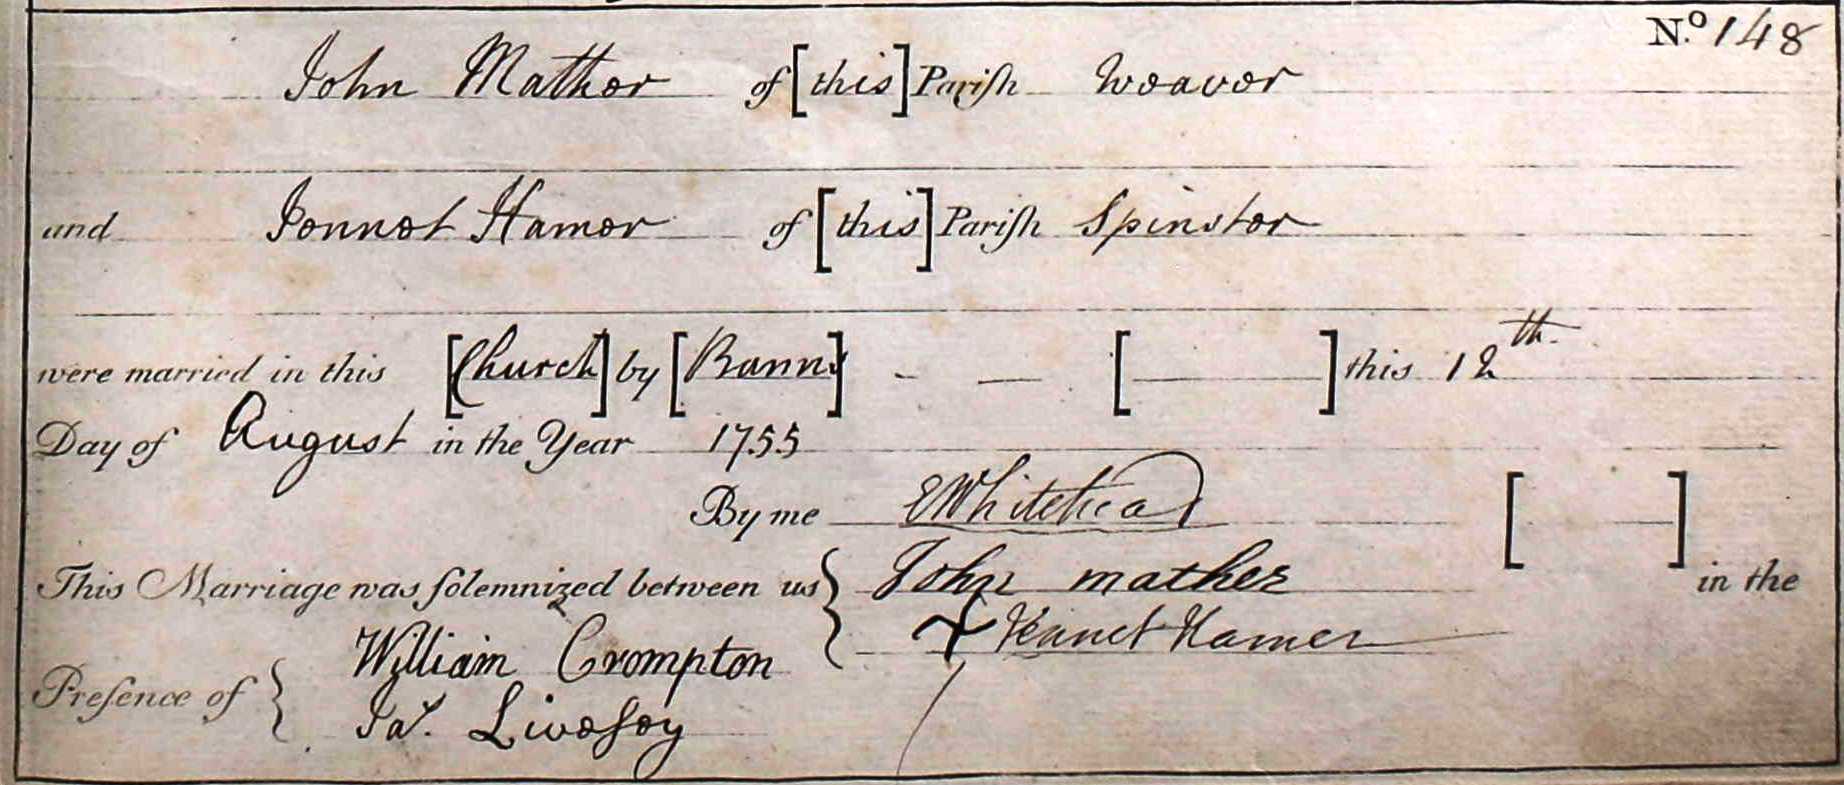 N.º 148
John Mather of [this] Pariſh Weaver
and Jennet Hamer of [this] Pariſh Spinster
were married in this [Church] by [Banns] - — [ ] this 12th.
Day of August in the Year 1755
By me EWhitehead [ ]
This Marriage was ſolemnized between us { John mather in the
X Jennet Hamer
Preſence of { William Crompton
Jas. Liveſey